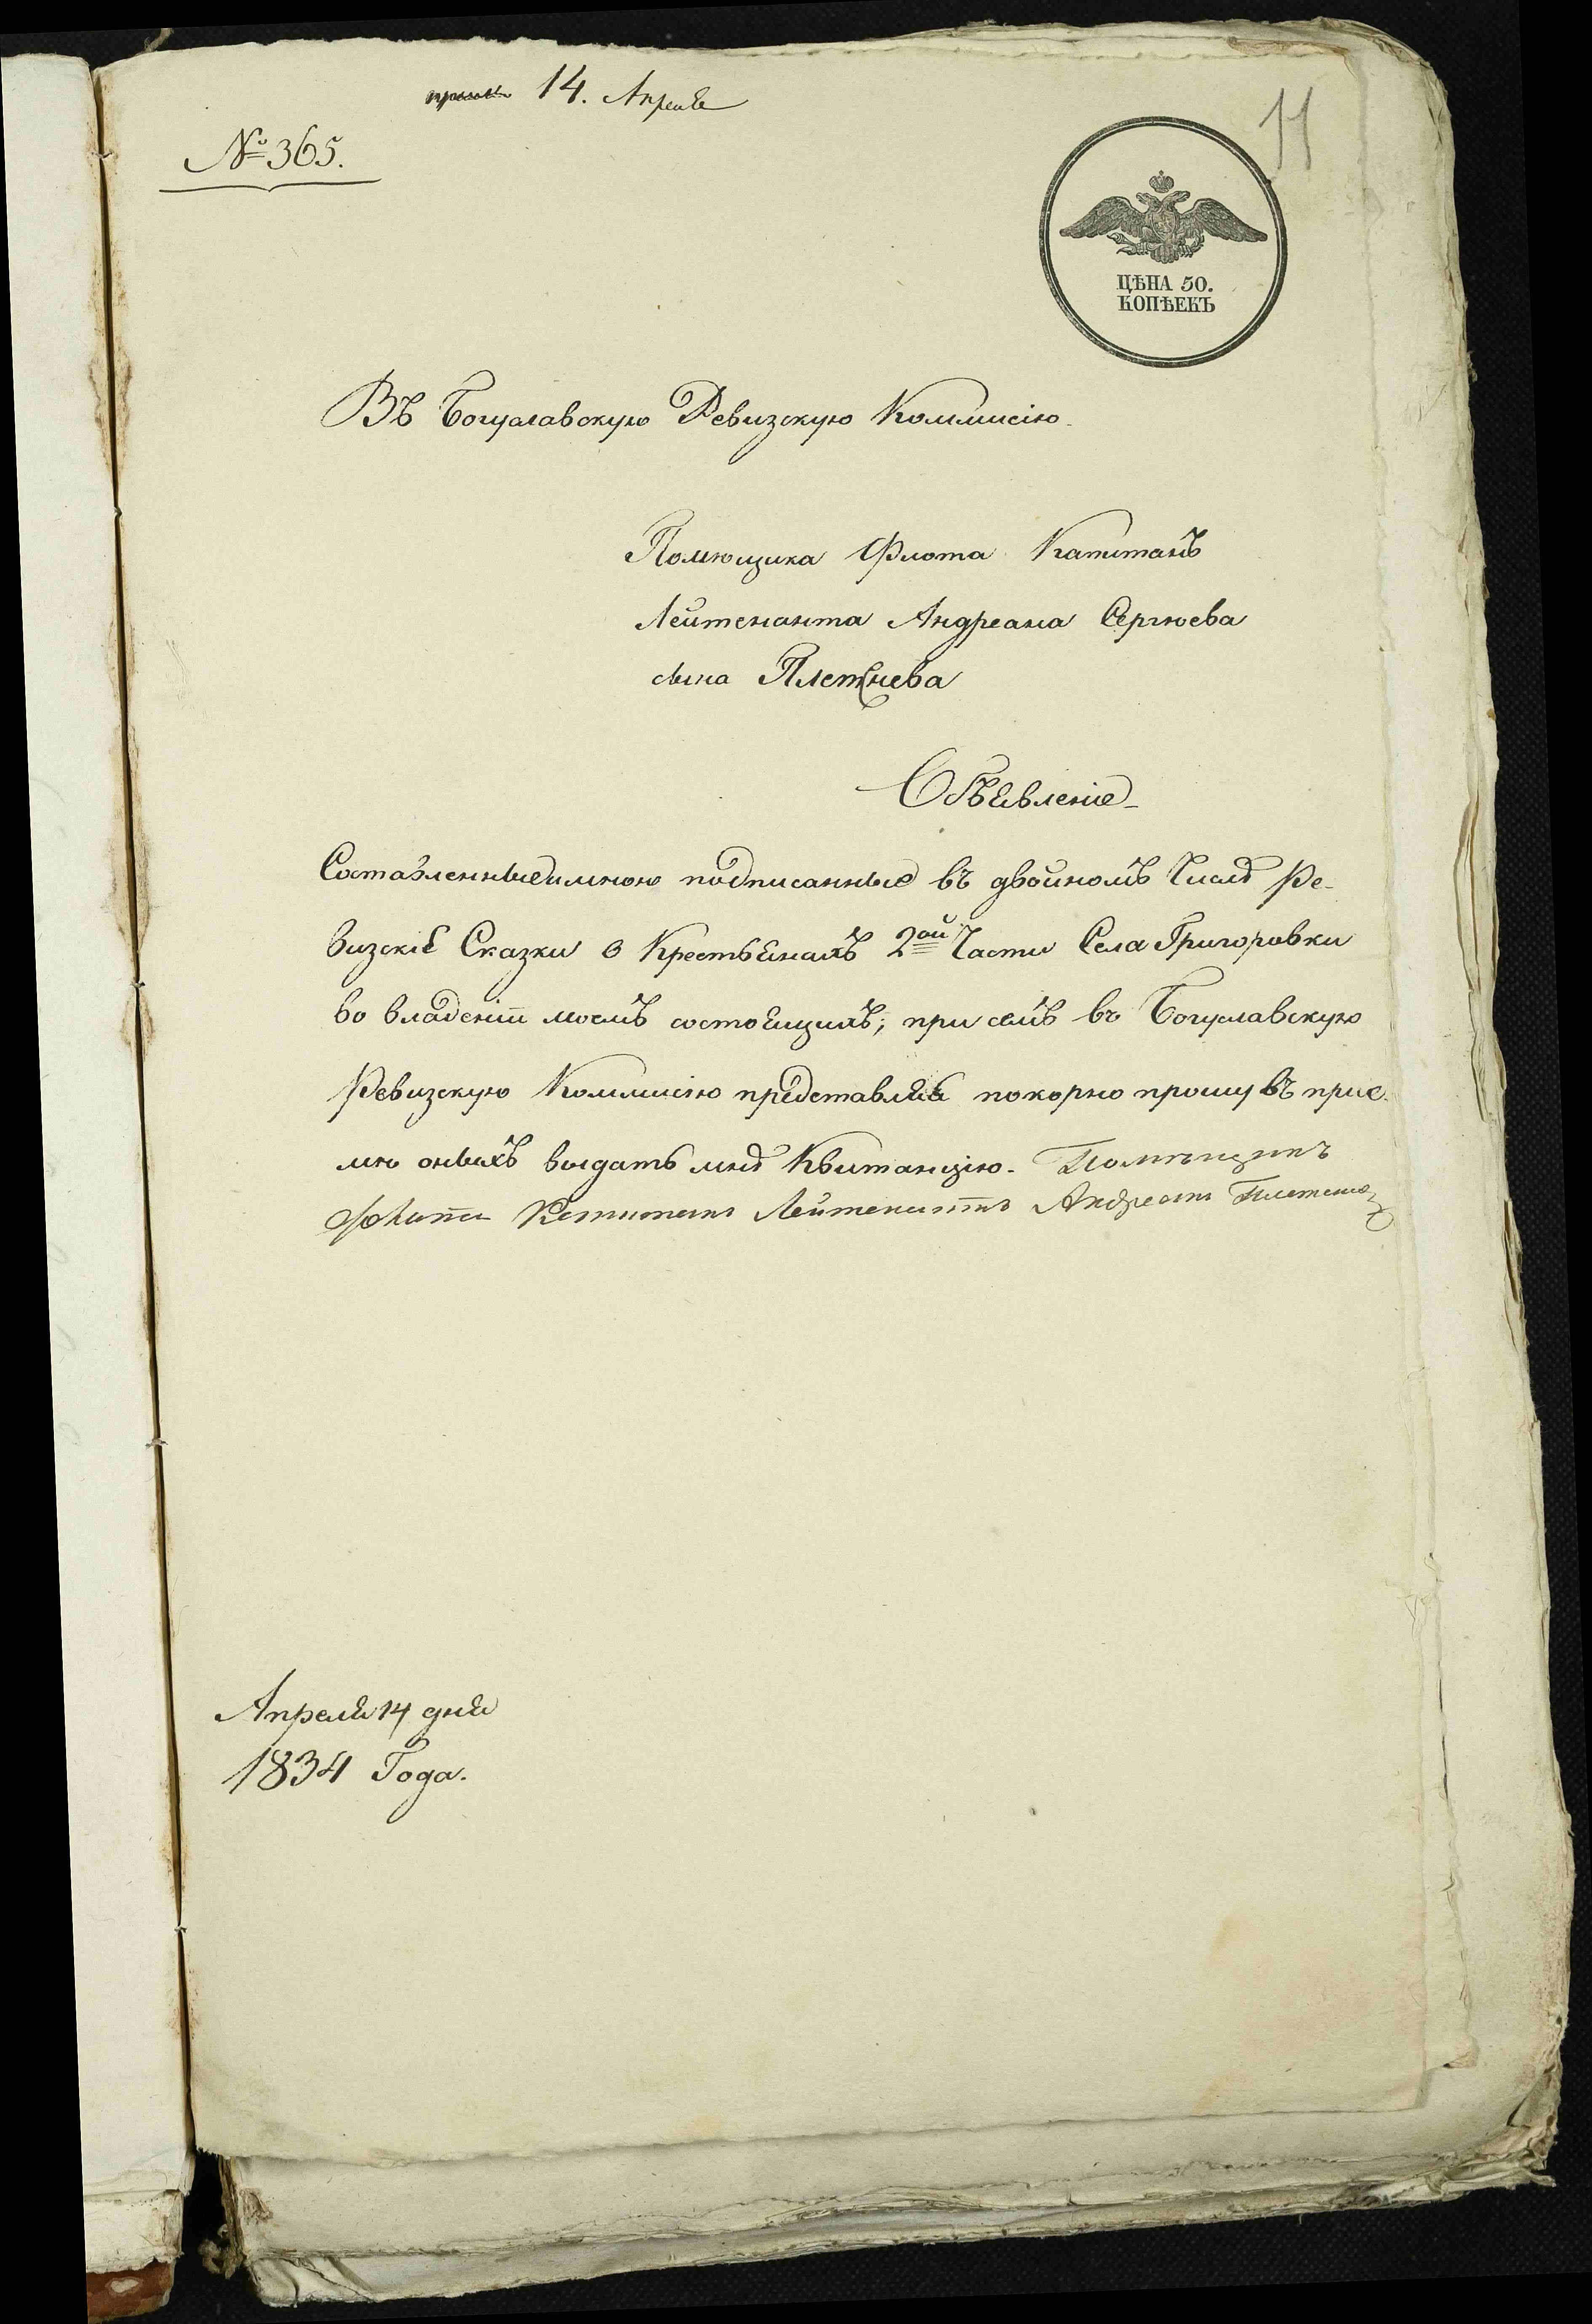 14. Апреля
№ 365.
11
ЦѢНА 50.
КОПѢЕКЪ
Въ Богуславскую Ревизскую Коммисію.
Помѣщика Флота Капитанъ
Лейтенанта Андреана Сергѣева
сына Плетнева
Объявленіе
Составленные и мною подписанные въ двойномъ Числѣ Ре-
визскіе Сказки о Крестьянахъ 2ой Части Села Григоровки
во владеніи моемъ состоящихъ; при семъ въ Богуславскую
Ревизскую Коммисію представляя покорно прошу въ прие-
мѣ оныхъ выдать мнѣ Квитанцію. Помѣщикъ
Флота Капитанъ Лейтенантъ Андреанъ
Апреля 14 дня
1834 Года.